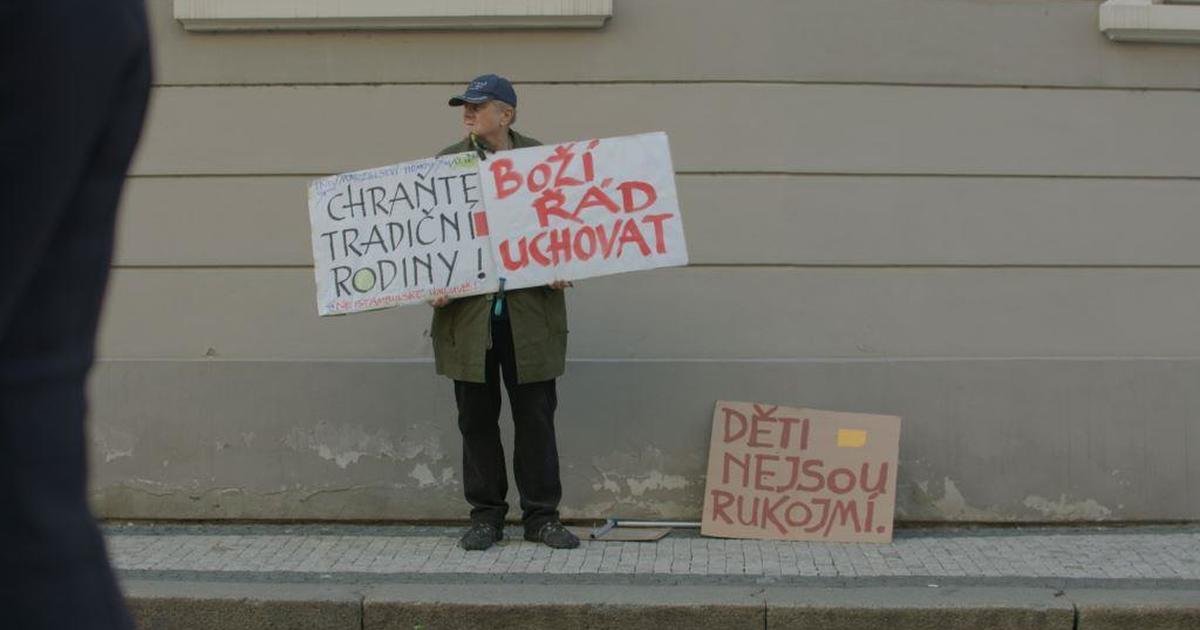 CHRAŇTE
TRADIČNÍ
RODINY!
NE ISTAMBULSKÉ ÚMLUVĚ!
BOŽÍ
ŘÁD
UCHOVAT
DĚTI
NEJSOU
RUKOJMÍ.